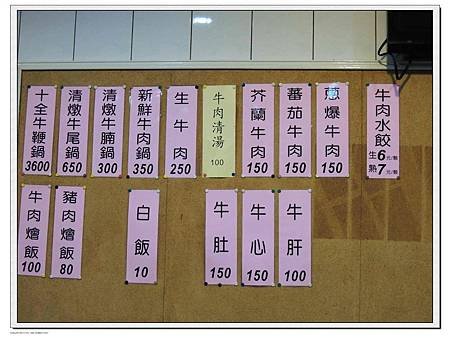 十全牛鞭鍋 3600
清燉牛尾鍋 650
清燉牛腩鍋 300
新鮮牛肉鍋 350
生牛肉 250
牛肉清湯 100
芥蘭牛肉 150
蕃茄牛肉 150
蔥爆牛肉 150
牛肉水餃 生6元/顆 熟7元/顆
牛肉燴飯 100
豬肉燴飯 80
白飯 10
牛肚 150
牛心 150
牛肝 100